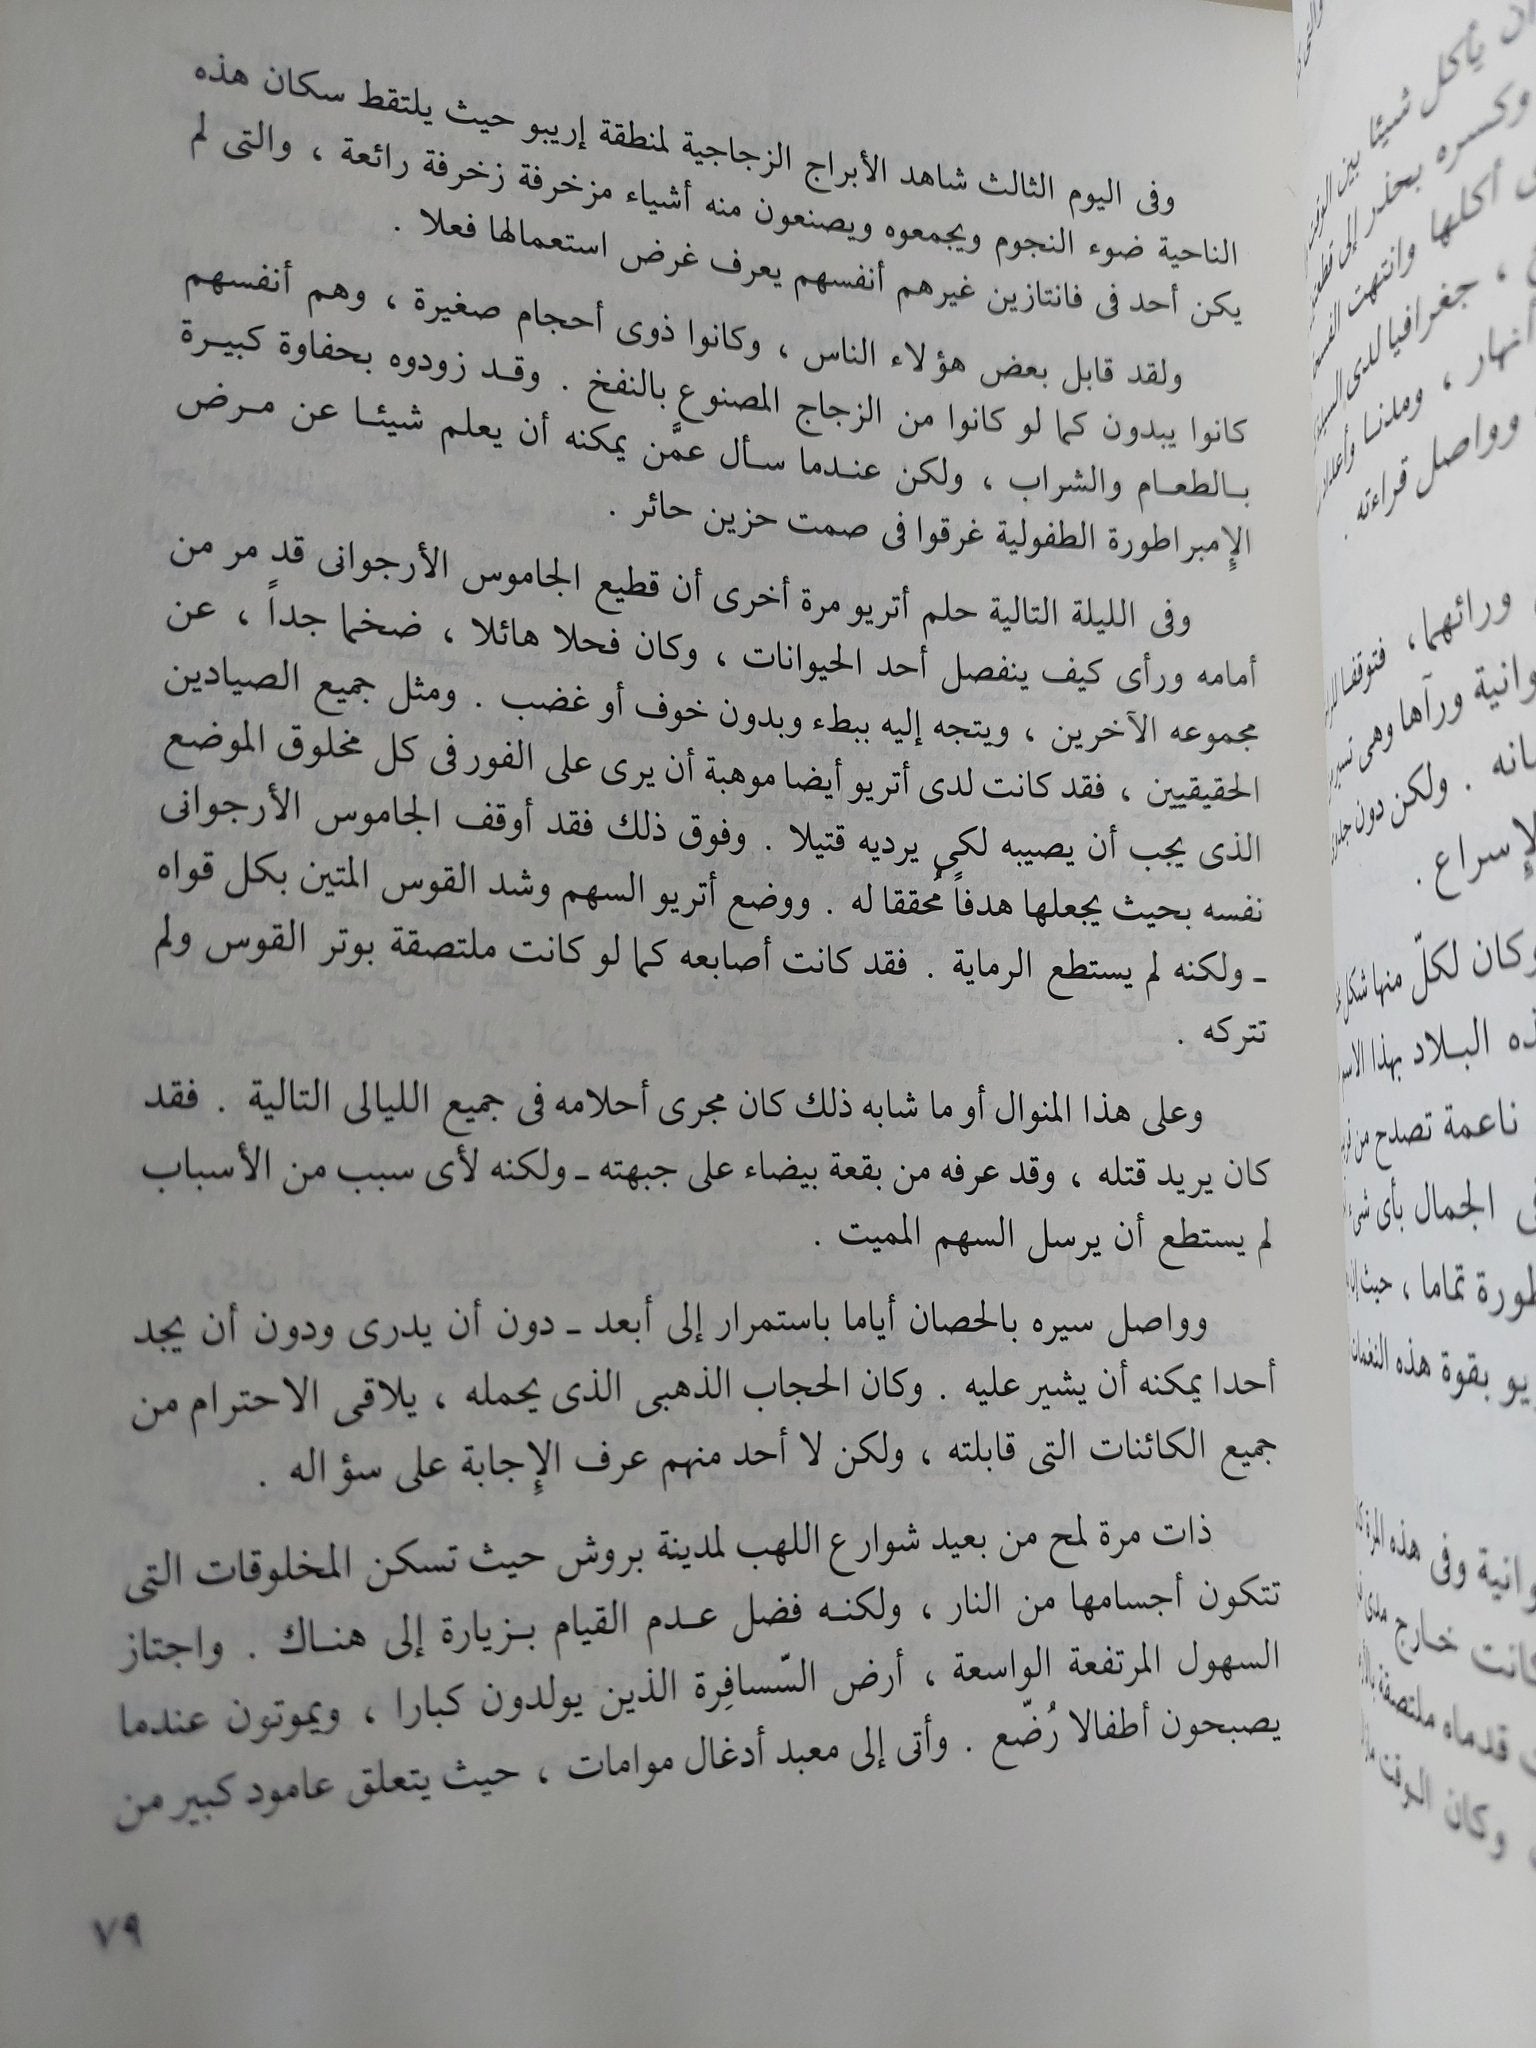 وفى اليوم الثالث شاهد الأبراج الزجاجية لمنطقة إريبو حيث يلتقط سكان هذه
الناحية ضوء النجوم ويجمعوه ويصنعون منه أشياء مزخرفة زخرفة رائعة ، والتى لم
يكن أحد فى فانتازين غيرهم أنفسهم يعرف غرض استعمالها فعلا .
ولقد قابل بعض هؤلاء الناس ، وكانوا ذوى أحجام صغيرة ، وهم أنفسهم
كانوا يبدون كما لو كانوا من الزجاج المصنوع بالنفخ . وقد زودوه بحفاوة كبيرة
بالطعام والشراب ، ولكن عندما سأل عمَّن يمكنه أن يعلم شيئا عن مرض
الإمبراطورة الطفولية غرقوا فى صمت حزين حائر .
وفى الليلة التالية حلم أتريو مرة أخرى أن قطيع الجاموس الأرجوانى قد مر من
أمامه ورأى كيف ينفصل أحد الحيوانات ، وكان فحلا هائلا ، ضخما جداً ، عن
مجموعه الآخرين ، ويتجه إليه ببطء وبدون خوف أو غضب . ومثل جميع الصيادين
الحقيقيين ، فقد كانت لدى أتريو أيضا موهبة أن يرى على الفور فى كل مخلوق الموضع
الذى يجب أن يصيبه لكى يرديه قتيلا . وفوق ذلك فقد أوقف الجاموس الأرجوانى
نفسه بحيث يجعلها هدفاً مُحققا له . ووضع أتريو السهم وشد القوس المتين بكل قواه
ـ ولكنه لم يستطع الرماية . فقد كانت أصابعه كما لو كانت ملتصقة بوتر القوس ولم
تتركه .
وعلى هذا المنوال أو ما شابه ذلك كان مجرى أحلامه فى جميع الليالى التالية . فقد
كان يريد قتله ، وقد عرفه من بقعة بيضاء على جبهته ـ ولكنه لأى سبب من الأسباب
لم يستطع أن يرسل السهم المميت .
وواصل سيره بالحصان أياما باستمرار إلى أبعد ـ دون أن يدرى ودون أن يجد
أحدا يمكنه أن يشير عليه . وكان الحجاب الذهبى الذى يحمله ، يلاقى الاحترام من
جميع الكائنات التى قابلته ، ولكن لا أحد منهم عرف الإجابة على سؤاله .
ذات مرة لمح من بعيد شوارع اللهب لمدينة بروش حيث تسكن المخلوقات التى
تتكون أجسامها من النار ، ولكنه فضل عدم القيام بزيارة إلى هناك . واجتاز
السهول المرتفعة الواسعة ، أرض السّسافِرة الذين يولدون كبارا ، ويموتون عندما
يصبحون أطفالا رُضّع . وأتى إلى معبد أدغال موامات ، حيث يتعلق عامود كبير من
٧٩
يأكل شيئا بين
وكسره بحذر إلى
أكلها وانتهت
، جغرافيا لدى
أنهار ، ومدنا
وواصل قراءته .
ورائهما ، فتوقفا
ورآها وهى
. ولكن دون
لإسراع .
وكان لكلّ منها شكل
البلاد بهذا الاسم
ناعمة تصدح من
الجمال بأى شىء
تماما ، حيث
بقوة هذه النغمات
وفى هذه المرة
خارج مدى
قدماه ملتصقة
وكان الوقت